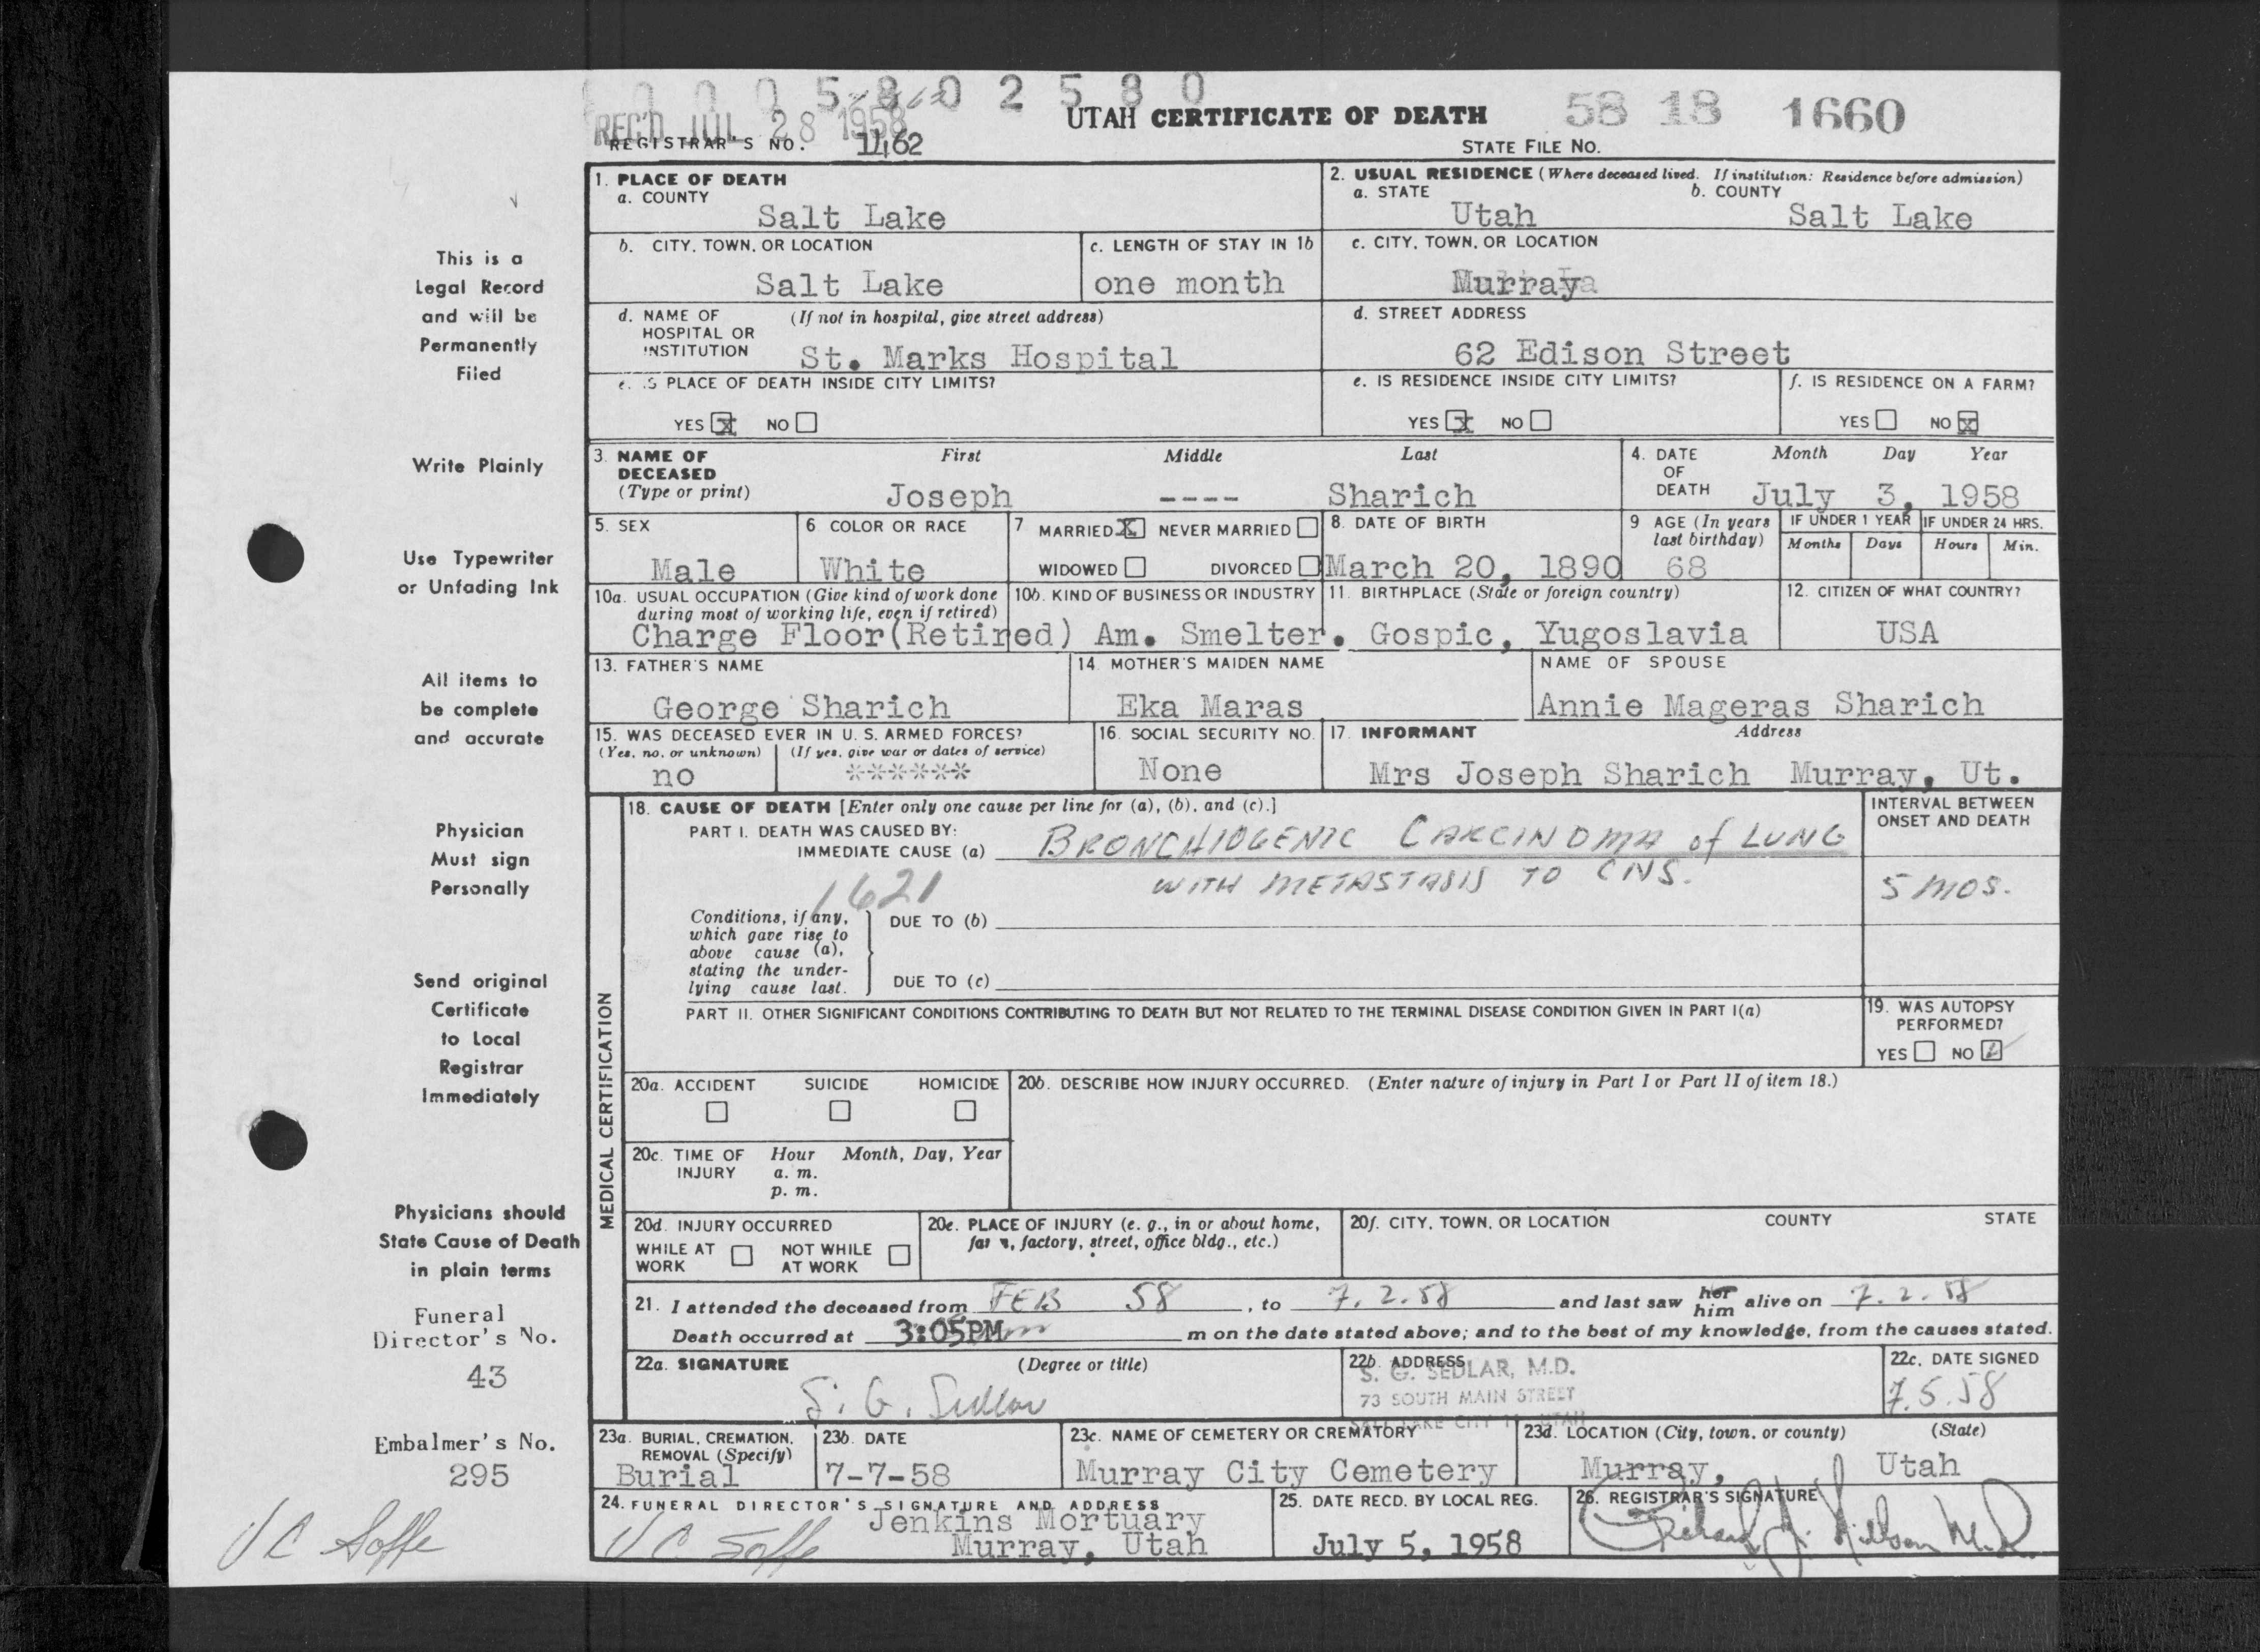 0 0 0 5 8 0 2 5 8 0
REC'D JUL 28 1958
UTAH CERTIFICATE OF DEATH
58 18 1660
REGISTRAR'S NO. 1462
STATE FILE NO.
This is a
Legal Record
and will be
Permanently
Filed
Write Plainly
Use Typewriter
or Unfading Ink
All items to
be complete
and accurate
Physician
Must sign
Personally
Send original
Certificate
to Local
Registrar
Immediately
Physicians should
State Cause of Death
in plain terms
Funeral
Director's No.
43
Embalmer's No.
295
V C Soffe
1. PLACE OF DEATH
a. COUNTY
Salt Lake
2. USUAL RESIDENCE (Where deceased lived. If institution: Residence before admission)
a. STATE b. COUNTY
Utah Salt Lake
b. CITY, TOWN, OR LOCATION
Salt Lake
c. LENGTH OF STAY IN 1b
one month
c. CITY, TOWN, OR LOCATION
Murray
d. NAME OF (If not in hospital, give street address)
HOSPITAL OR
INSTITUTION St. Marks Hospital
d. STREET ADDRESS
62 Edison Street
e. IS PLACE OF DEATH INSIDE CITY LIMITS?
YES X NO
e. IS RESIDENCE INSIDE CITY LIMITS?
YES X NO
f. IS RESIDENCE ON A FARM?
YES NO X
3. NAME OF First Middle Last
DECEASED
(Type or print) Joseph ---- Sharich
4. DATE Month Day Year
OF
DEATH July 3, 1958
5. SEX
Male
6 COLOR OR RACE
White
7 MARRIED X NEVER MARRIED
WIDOWED DIVORCED
8. DATE OF BIRTH
March 20, 1890
9 AGE (In years
last birthday)
68
IF UNDER 1 YEAR
Months Days
IF UNDER 24 HRS.
Hours Min.
10a. USUAL OCCUPATION (Give kind of work done
during most of working life, even if retired)
Charge Floor(Retired)
10b. KIND OF BUSINESS OR INDUSTRY
Am. Smelter.
11. BIRTHPLACE (State or foreign country)
Gospic, Yugoslavia
12. CITIZEN OF WHAT COUNTRY?
USA
13. FATHER'S NAME
George Sharich
14. MOTHER'S MAIDEN NAME
Eka Maras
NAME OF SPOUSE
Annie Mageras Sharich
15. WAS DECEASED EVER IN U. S. ARMED FORCES?
(Yes, no, or unknown) (If yes, give war or dates of service)
no ******
16. SOCIAL SECURITY NO.
None
17. INFORMANT Address
Mrs Joseph Sharich Murray, Ut.
MEDICAL CERTIFICATION
18. CAUSE OF DEATH [Enter only one cause per line for (a), (b), and (c).]
INTERVAL BETWEEN
ONSET AND DEATH
PART I. DEATH WAS CAUSED BY:
IMMEDIATE CAUSE (a) BRONCHIOGENIC CARCINOMA of LUNG
WITH METASTASIS TO CNS.
5 MOS.
1621
Conditions, if any,
which gave rise to
above cause (a),
stating the under-
lying cause last.
DUE TO (b)
DUE TO (c)
PART II. OTHER SIGNIFICANT CONDITIONS CONTRIBUTING TO DEATH BUT NOT RELATED TO THE TERMINAL DISEASE CONDITION GIVEN IN PART I(a)
19. WAS AUTOPSY
PERFORMED?
YES NO
20a. ACCIDENT SUICIDE HOMICIDE
20b. DESCRIBE HOW INJURY OCCURRED. (Enter nature of injury in Part I or Part II of item 18.)
20c. TIME OF Hour Month, Day, Year
INJURY a. m.
p. m.
20d. INJURY OCCURRED
WHILE AT NOT WHILE
WORK AT WORK
20e. PLACE OF INJURY (e. g., in or about home,
farm, factory, street, office bldg., etc.)
20f. CITY, TOWN, OR LOCATION COUNTY STATE
21. I attended the deceased from FEB 58, to 7.2.58 and last saw her him alive on 7.2.58
Death occurred at 3:05PM m on the date stated above; and to the best of my knowledge, from the causes stated.
22a. SIGNATURE (Degree or title)
S. G. Sedlar
22b. ADDRESS
S. G. SEDLAR, M.D.
73 SOUTH MAIN STREET
SALT LAKE CITY UTAH
22c. DATE SIGNED
7.5.58
23a. BURIAL, CREMATION,
REMOVAL (Specify)
Burial
23b. DATE
7-7-58
23c. NAME OF CEMETERY OR CREMATORY
Murray City Cemetery
23d. LOCATION (City, town, or county) (State)
Murray, Utah
24. FUNERAL DIRECTOR'S SIGNATURE AND ADDRESS
V C Soffe Jenkins Mortuary
Murray, Utah
25. DATE RECD. BY LOCAL REG.
July 5, 1958
26. REGISTRAR'S SIGNATURE